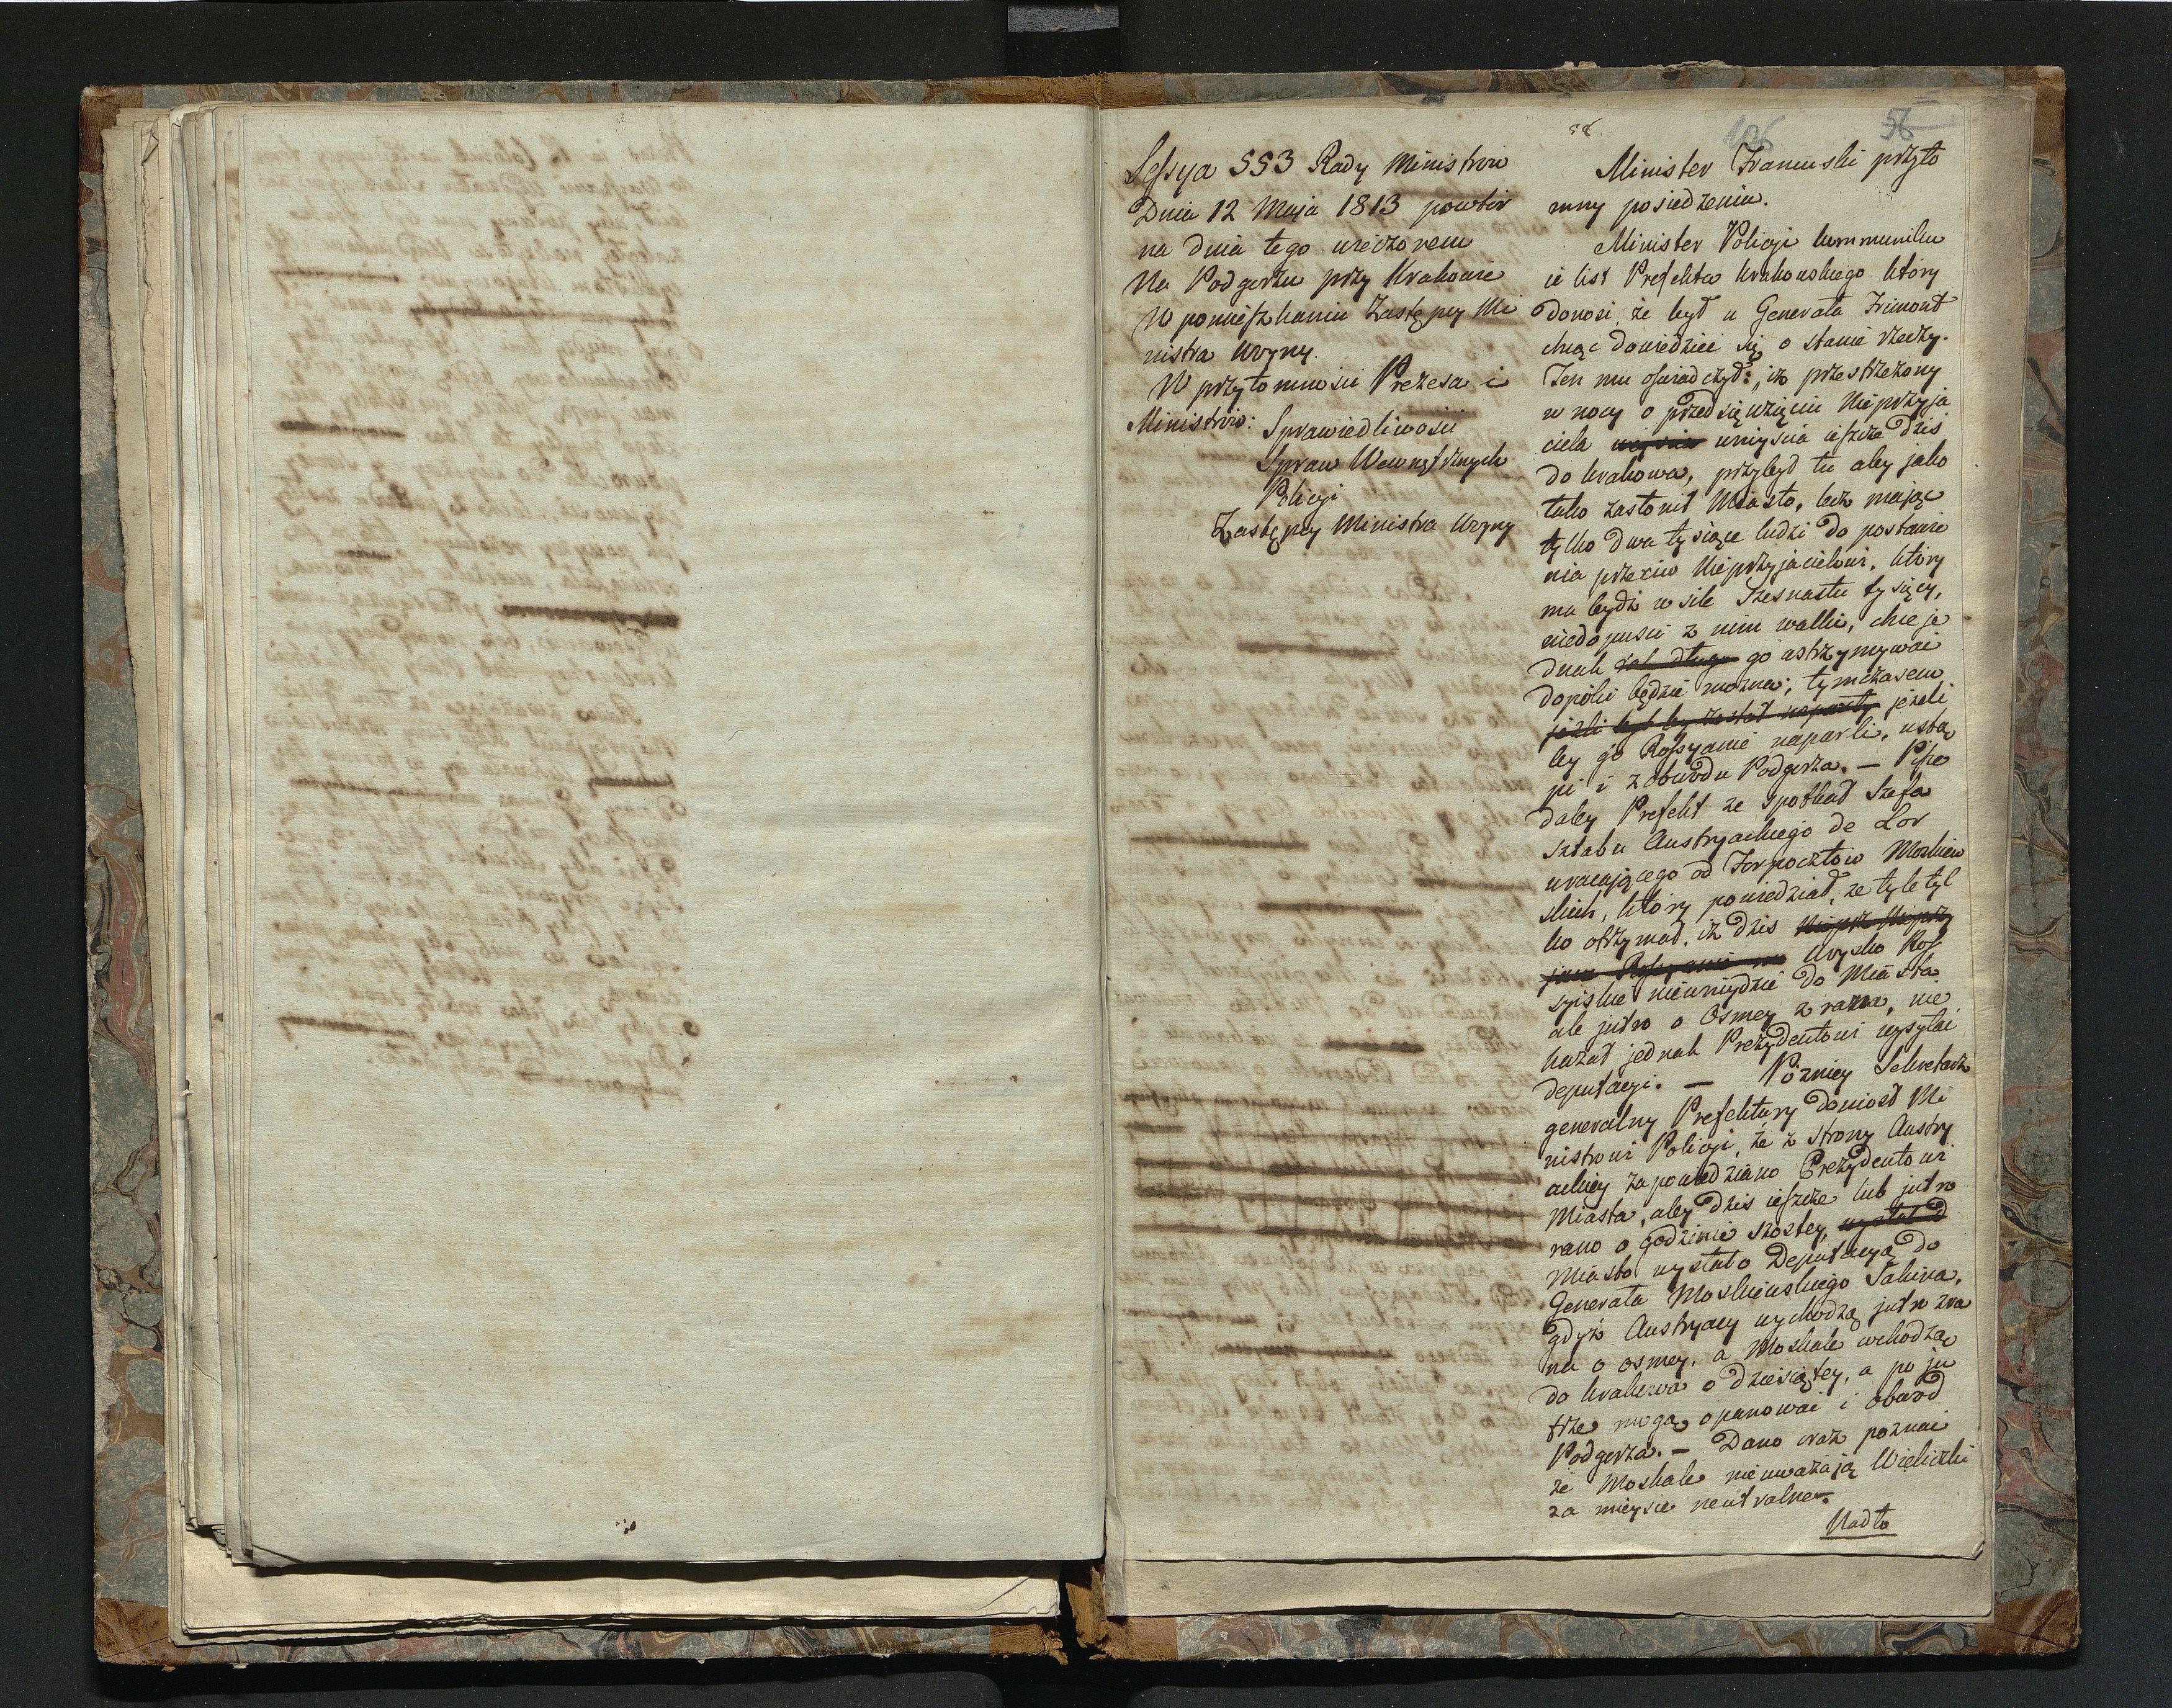 58
106
56
Sessya 553 Rady Ministrów
Dnia 12 Maja 1813 powtór
na dnia tego wieczorem
Na Podgorzu przy Krakowie
W pomieszkaniu Zastępcy Mi
nistra Woyny.
W przytomności Prezesa i
Ministrów: Sprawiedliwości
Spraw Wewnętrznych
Policyi
Zastępcy Ministra Woyny
Minister Francuski przyto
mny posiedzeniu.
Minister Policyi kommuniku
ie list Prefekta krakowskiego który
donosi, że był u Generała Frimont
chcąc dowiedzieć się o stanie rzeczy.
Ten mu oświadczył: iż przestrzeżony
w nocy o przedsięwzięciu Nieprzyja
ciela weyścia wniyścia ieszcze dziś
do krakowa, przybył tu aby jako
tako zasłonił Miasto, lecz mając
tylko dwa tysiące ludzi do postawie
nia przeciw Nieprzyjacielowi, który
ma bydź w sile Szesnastu tysięcy,
niedopuści z nim walki, chce je
dnak tak długo go wstrzymywać
dopóki będzie można; tymczasem
jeżli byłby został naparty jeżeli
by go Rossyanie naparli, ustą
pi i z obwodu Podgorza. — Pisze
daley Prefekt ze spotkał Szefa
sztabu Austryackiego de Lor
wracającego od Forpocztow Moskiew
skich, który powiedział, ze tyle tyl
ko otrzymał, iż dziś Nieprz Nieprzy
jaca Rossyanie na Woysko Ros
syiskie niewniydzie do Miasta
ale jutro o Osmey z rana, nie
kazał jednak Prezydentowi wysyłać
deputacyi. — Pózniey Sekretarz
generalny Prefektury doniosł Mi
nistrowi Policyi, że z strony Austry
ackiey zapowiedziano Prezydentowi
Miasta, aby dziś ieszcze lub jutro
rano o godzinie szostey, wysłał D
Miasto wysłało Deputacyą do
Generała Moskiewskiego Sakina,
gdyż Austryacy wychodzą jutro zra
na o osmey, a Moskale wchodzą
do krakowa o dziesiątey, a po ju
trze mogą opanować i obwod
Podgorza. — Dano oraz poznać
że Moskale nieuważają Wieliczki
za mieysce neutralne.
Nadto